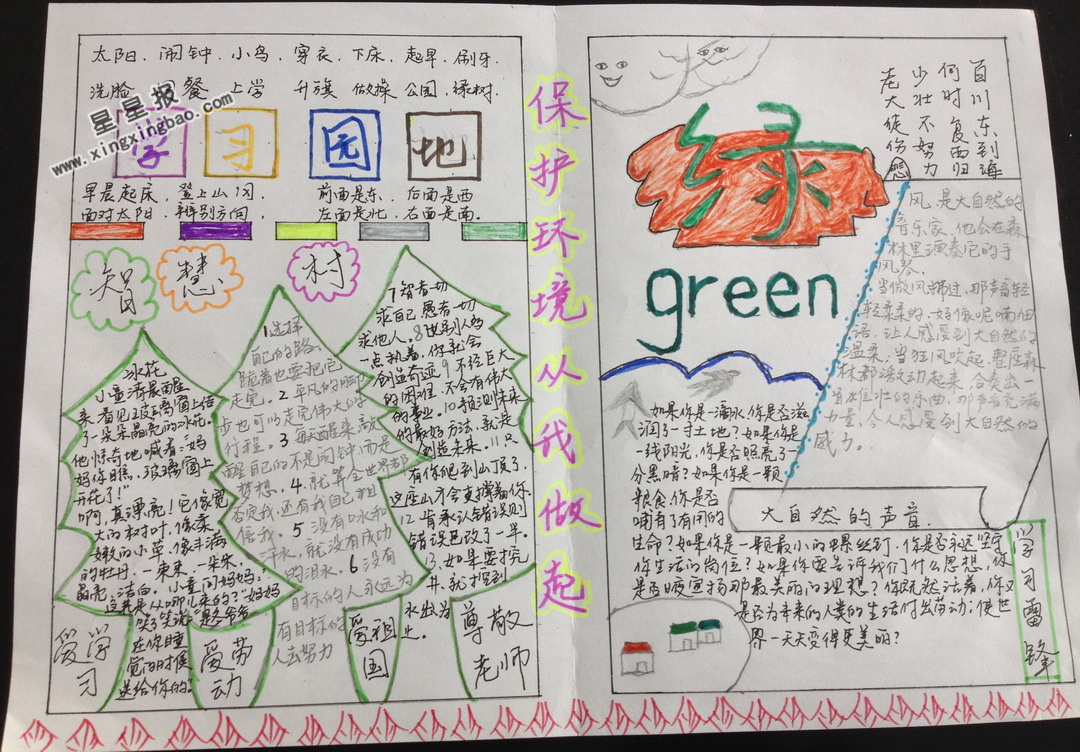 太阳．闹钟．小鸟．穿衣．下床．起早．刷牙．
洗脸
餐 上学 升旗 做操 公园．绿树．
星星报
www.xingxingbao.com
学习园地
早晨起床，登上山冈． 前面是东．后面是西
面对太阳．辨别方向， 左面是北．右面是南。
智慧村
冰花
小童清晨醒
来．看见玻璃窗上结
了一朵朵晶亮的冰花。
他惊奇地喊着：妈
妈你瞧，玻璃窗上
开花了！"
啊，真漂亮！它像宽
大的树叶，像柔
嫩的小草，像丰满
的牡丹．一束束．一朵朵．
晶亮，洁白。小童问妈妈：
这是从哪儿来的？"妈妈
笑了笑说："是冬爷爷
在你睡
觉的时候
送给你的。
1选择
自己的路、
跪着也要把它
走完。2.平凡的脚
步也可以走完伟大的
行程。3.每天醒来敲
醒自己的不是闹钟，而是
梦想．4.就算全世界都
否定我．还有我自己相
信我．5.没有口水和
汗水，就没有成功
的泪水。6.没有
目标的人永远为
有目标的
人去努力
7智者一切
求自己愚者一切
求他人．8比别人多
一点执着．你就会
创造奇迹9不经巨大
的困难．不会有伟大
的事业．10.预测未来
的最好方法．就是
创造未来．11.只
有你爬到山顶了．
这座山才会支撑着你．
12肯承认错误则
错误已改了一半。
13.如果要挖
井．就挖到
水出为
止。
爱学习
爱劳动
爱祖国
尊敬老师
保护环境从我做起
绿
green
百川东到海
何时复西归
少壮不努力
老大徒伤悲
风，是大自然的
音乐家，他会在森
林里演奏它的手
风琴．
当微风拂过．那声音轻
轻柔柔的．好像呢喃细
语．让人感受到大自然的
温柔；当狂风吹起．整座森
林都激动起来．合奏出一
首雄壮的乐曲．那声音充满
力量．令人感受到大自然的
威力。
如果你是一滴水．你是否滋
润了一寸土地？如果你是
一线阳光，你是否照亮了一
分黑暗？如果你是一颗
粮食．你是否
哺育了有用的
生命？如果你是一颗最小的螺丝钉．你是否永远坚守
你生活的岗位？如果你要告诉我们什么思想，你
是否日夜宣扬那最美丽的理想？你既然活着，你又
是否为未来的人类的生活付出劳动：使世
界一天天变得更美丽？
大自然的声音．
学习雷锋